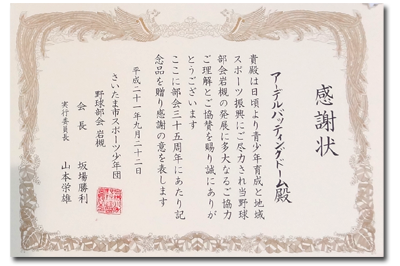 感謝状
アーデルバッティングドーム殿
貴殿は日頃より青少年育成と地域
スポーツ振興にご尽力され当野球
部会岩槻の発展に多大なるご協力
ご理解とご協賛を賜り誠にありが
とうございます
ここに部会三十五周年にあたり記
念品を贈り感謝の意を表します
平成二十一年九月二十二日
さいたま市スポーツ少年団
野球部会 岩槻
会長 坂場勝利
実行委員長 山本栄雄